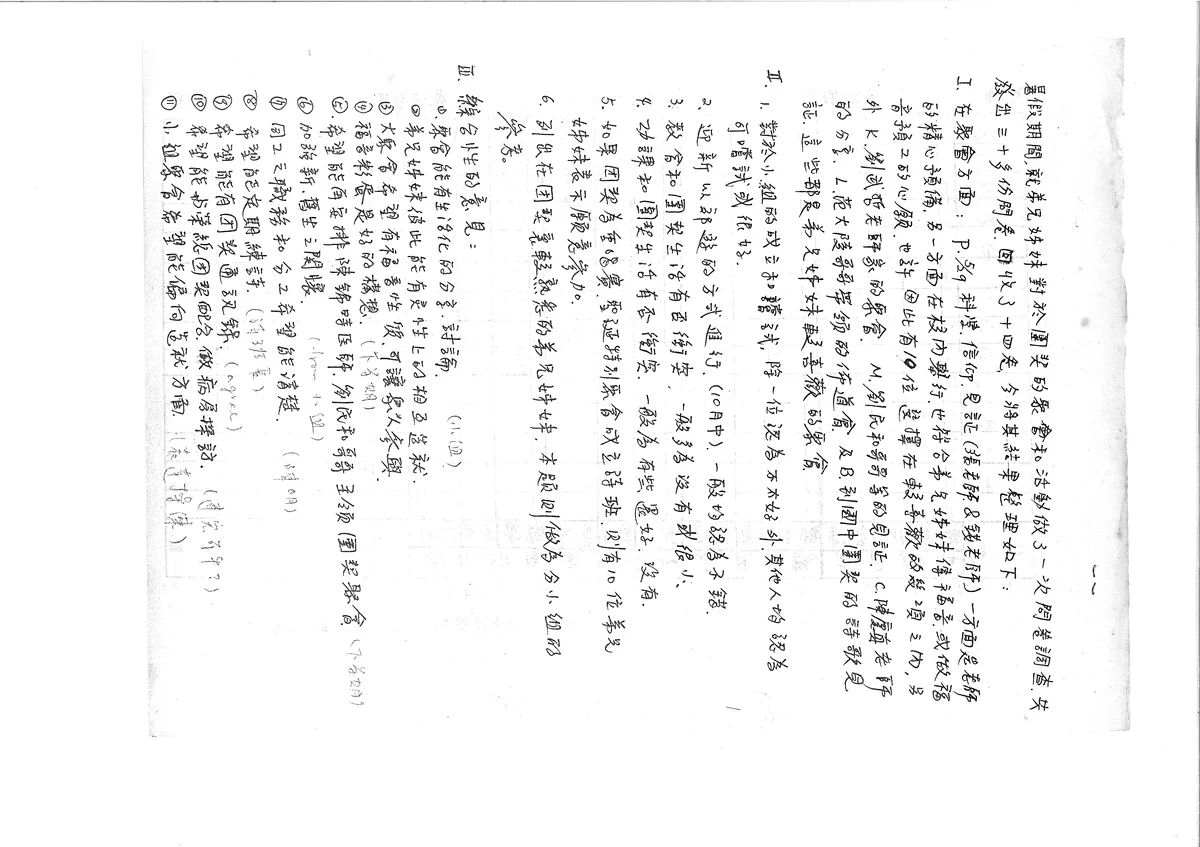 暑假期間就弟兄姊妹對於團契的聚會和活動做了一次問卷調查,共
發出三十多份問卷,回收了十四卷,今將其結果整理如下:
I. 在聚會方面: P.5/9 科學、信仰、見証(張老師&錢老師)一方面是老師
的精心預備,另一方面在校內舉行,也符合弟兄姊妹傳福音,或做福
音預工的心願,也許因此有10位選擇在較喜歡的幾項之內,另
外 K.劉武哲老師家的聚會 M.劉民和哥哥等的見証 C.陳慶真老師
的分享, L.范大陵哥哥帶領的佈道會及B.到國中團契的詩歌見
証,這些都是弟兄姊妹較喜歡的聚會
II. 1.對於小組的成立和嘗試,除一位認為不太好外,其他人均認為
可嚐試或很好.
2. 迎新以郊遊的方式進行(10月中),一般均認為不錯.
3. 教會和團契生活有否衝突,一般多為沒有或很小、
4. 功課和團契生活有否衝突,一般為有些還好,沒有.
5. 如果團契為余慈寰,聖誕特別聚會成立詩班,則有10位弟兄
姊妹表示願意參加。
6. 列出在團契裏較熟悉的弟兄姊妹,本題則做為分小組的
參考。
III. 綜合性的意見:
①.聚會能有生活化的分享、討論. (小組)
② 弟兄姊妹彼此能有靈性上的相互造就.
③ 大聚會希望有福音性質,可讓眾人參與.
④ 福音彩蛋是好的構想. (下學期)
⑤. 希望能再安排陳錦時医師,劉民和哥哥主領團契聚會(下學期?)
⑥ 加強新、舊生之關懷. (from 小組)
⑦ 同工之職務和分工希望能清楚.
⑧ 希望能定期練詩.
⑨ 希望能有團契通訊錄. (agree)
⑩ 希望能與菁總團契配合,做病房探訪.
⑪ 小組聚會希望能偏向造就方面.